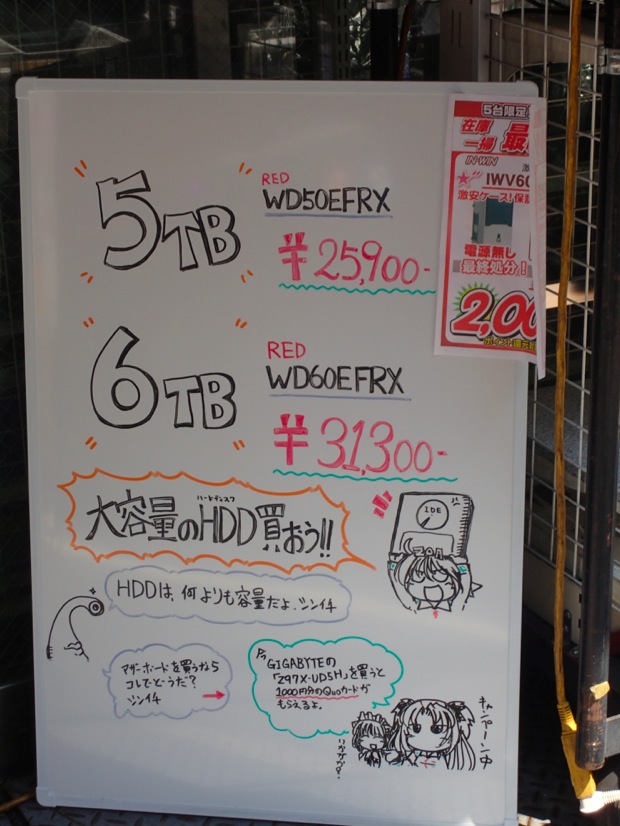 5TB
RED
WD50EFRX
¥25,900-
6TB
RED
WD60EFRX
¥31,300-
ハードディスク
大容量のHDD買おう!!
IDE
HDDは、何よりも容量だよ、シンイチ
マザーボードを買うなら
コレでどーうだ?
シンイチ
今GIGABYTEの
「Z97X-UD5H」を買うと
1000円分のQuoカードが
もらえるよ。
キャンペーン中
5台限定
在庫
一掃
最
IN-WIN
IWV60
激安ケース!保証
電源無し
最終処分!
2,00
ポイント還元